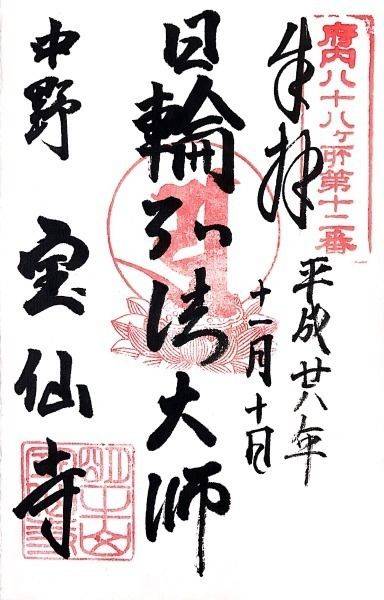 府内八十八ヶ所第十二番
奉拝
平成廿八年
十一月十日
日輪弘法大師
中野 宝仙寺